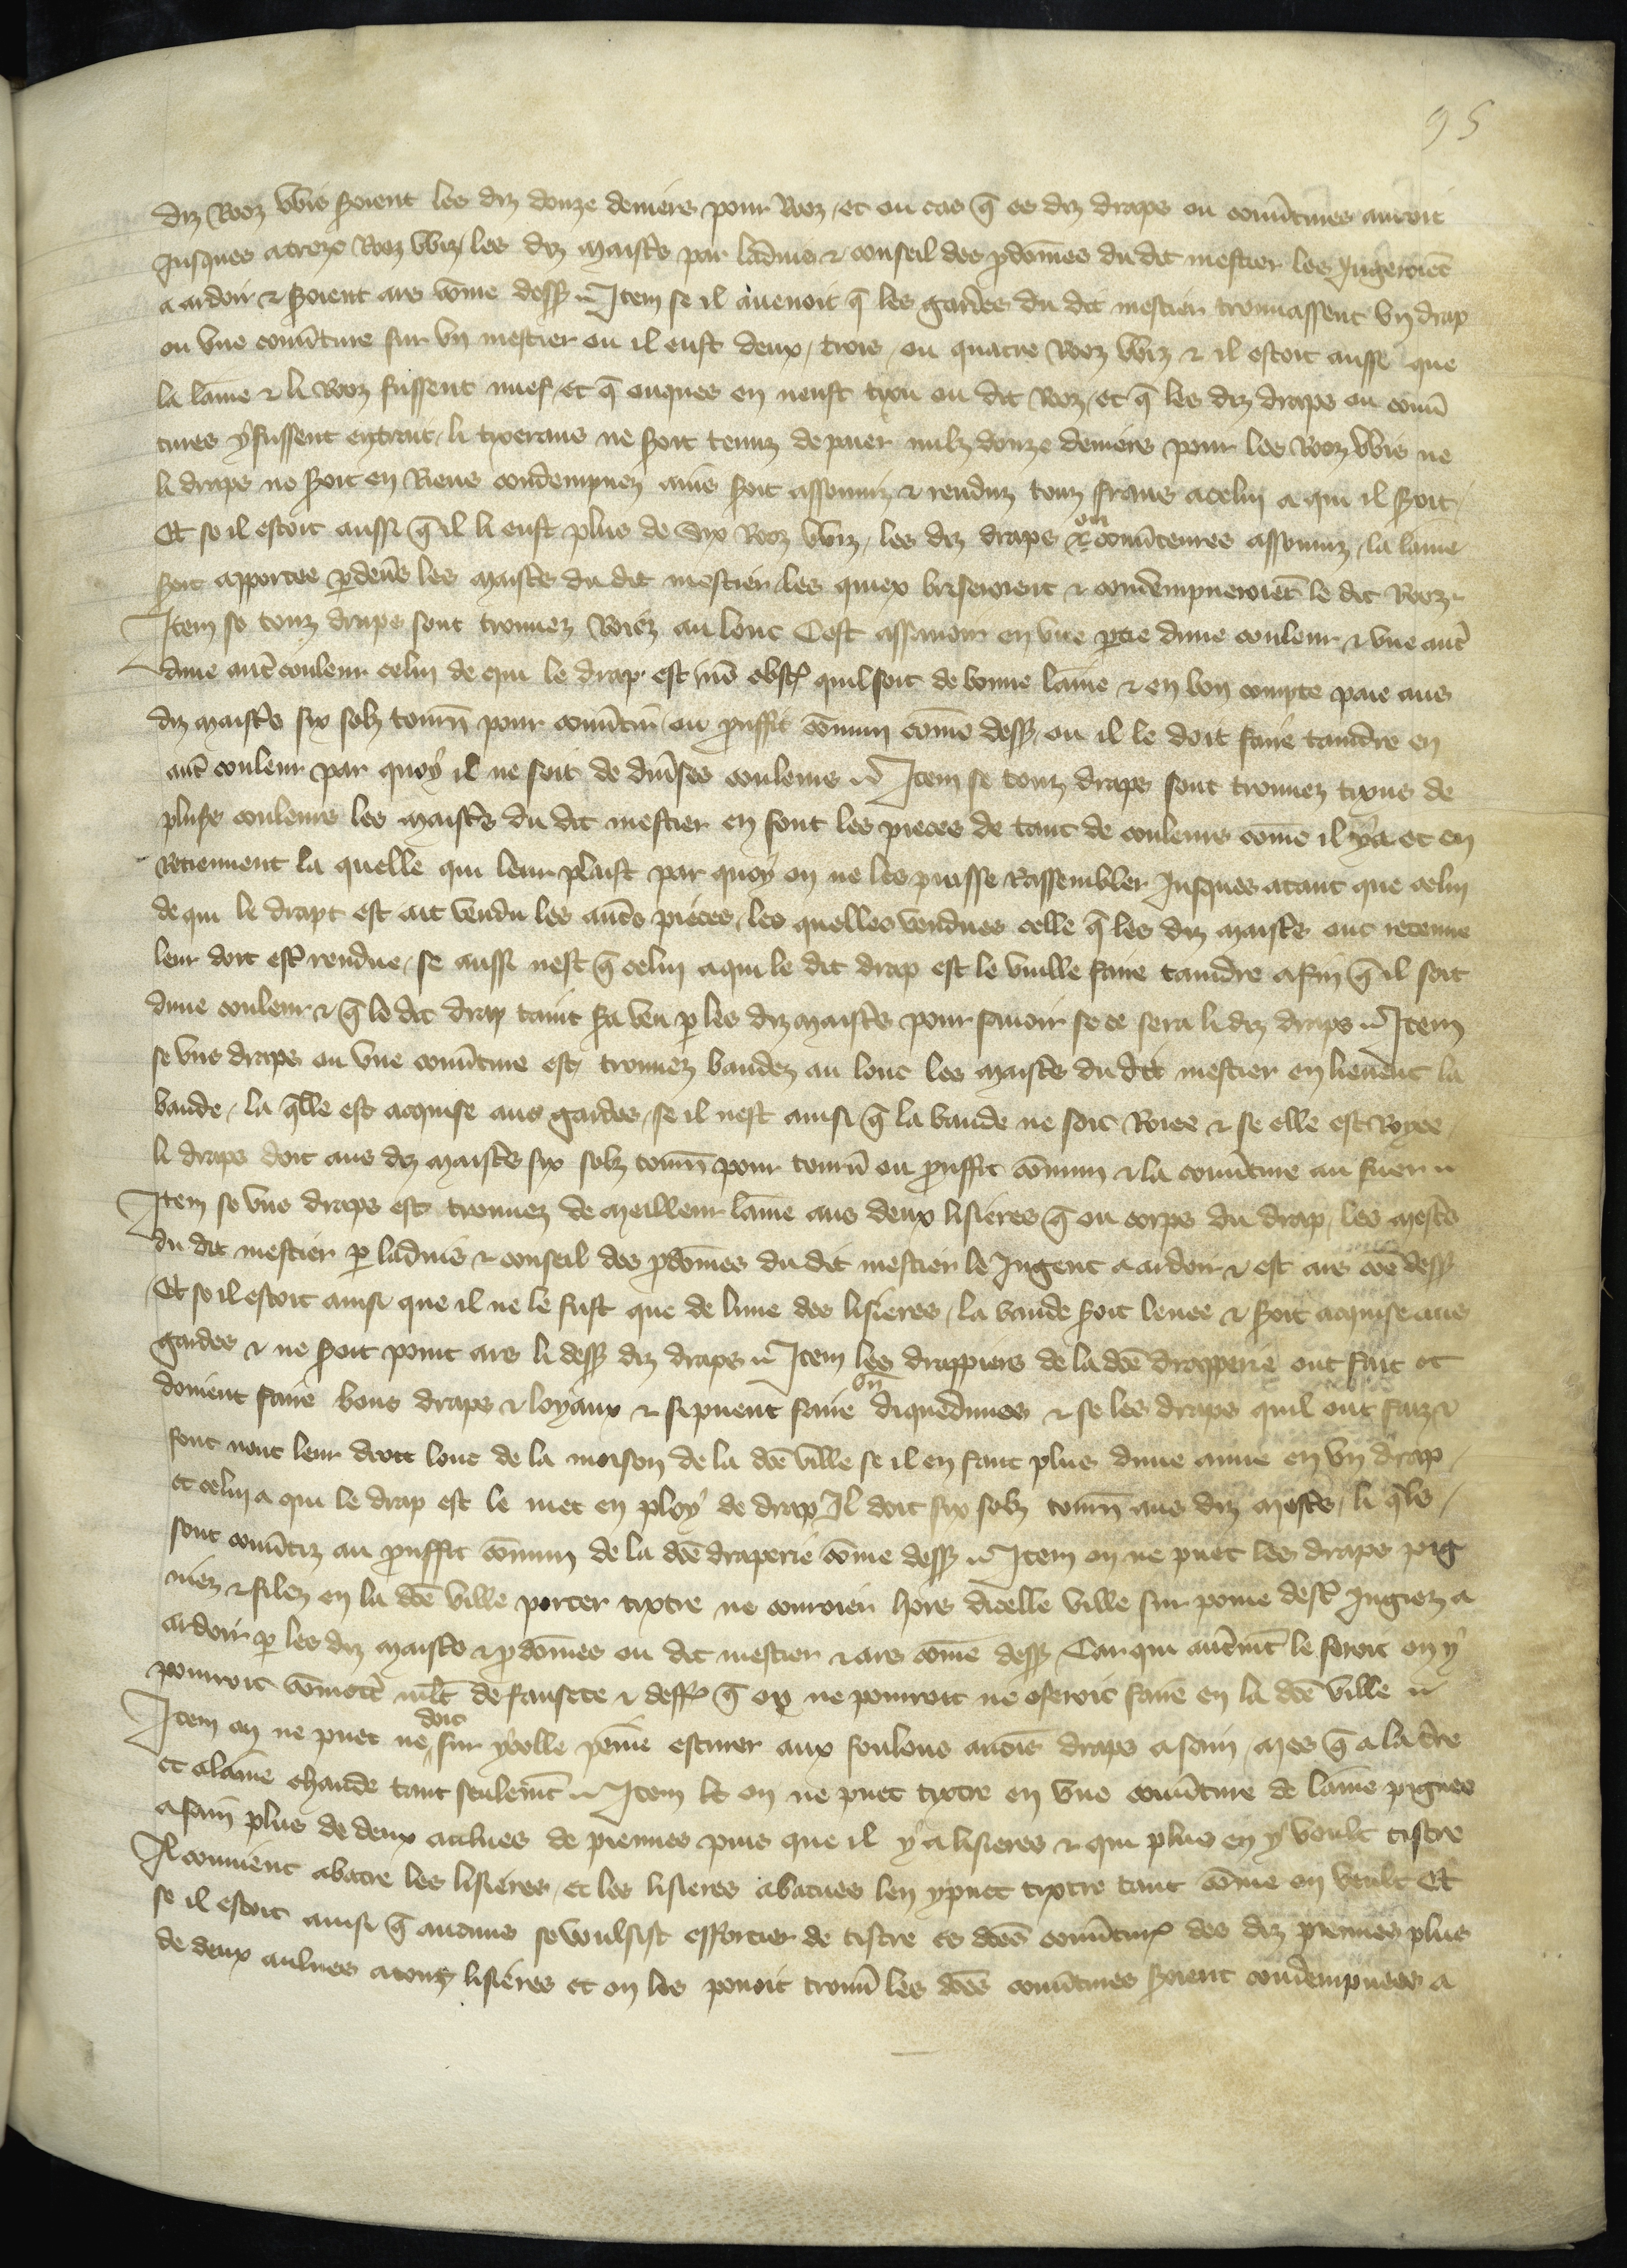 95
diz Rooz vvis seroient les diz douze deniers pour Rooz, et ou cas q̄ es diz draps ou couūtures auroit
Jusques a treze Rooz vviz, les diz maistrs par laduis & conseil des pdōmes du dit mestier les Jugeroiēt
a ardoir & seroient ars cōme dess9 Item se il auenoit q̄ les gardes du dit mestier trouuassent vn drap
ou vne couūture sur vn mestier ou il eust deux, trois, ou quatre Rooz vviz & il estoit ausse que
la laīne & li Rooz fussent nuef, et q̄ onques en neust tixu ou dit Rooz, et q̄ les diz draps ou couū
tures y fussent entrant, li tixerans ne seroit tenuz de paier nulz douze deniers pour les Rooz vvis ne
li draps ne seroit en Riens condempnez ains seroit assouuiz & renduz touz frans a celui a qui il seroit,
Et se il estoit aussi q̄ il li eust plus de six Rooz vviz, les diz draps ou couūteures assouuiz, la laīne
seroit apportee pdeūs les maistrs du dit mestier les quiex briseroient & condempneroiēt le dit Rooz
Item se touz draps sont trouuez Roiez au lonc Cest assauoir en vne ptie dune couleur, & vne autr
dune autr couleur celui de qui le drap est nō obst quil soit de bonne laīne & en bon compte paie aus
diz maistrs six solz tourn pour couūtir ou prouffit cōmun cōme dess9, ou il le doit faire taindre en
autr couleur par quoy il ne soit de diuses couleurs Item se touz draps sont trouuez tixus de
pluss couleurs les maistrs du dit mestier en font les pieces de tant de couleurs cōme il y a et en
Retiennent la quelle qui leur plaist par quoy on ne les puisse Rassembler Jusques atant que celui
de qui le drapt est ait vendu les autrs pieces, les quelles vendues celle q̄ les diz maistrs ont retenue
leur doit estr rendue, se aussi nest q̄ celui a qui le dit drap est le vuille faire taindre afin q̄ il soit
dune couleur & q̄ le dit drap taint sera veu p les diz maistrs pour sauoir se ce sera li diz draps Item
se vns draps ou vne couūture est trouuez bandez au lonc les maistrs du dit mestier en lieuent la
bande, la qlle est acquise aus gardes, se il nest ainsi q̄ la bande ne soit Roiee & se elle est Royee,
li draps doit aus diz maistrs six solz tourn pour tourn ou prouffit cōmun & la couūture au fuer
Item se vns draps est trouuez de meilleur laīne aus deux lisieres q̄ ou corps du drap, les mestrs
du dit mestier p laduis & conseil des pdōmes du dit mestier le Jugent a ardoir & est ars cōe dess9
Et se il estoit ainsi que il ne le fust que de lune des lisieres, la bande seroit leuee & seroit acquise aus
gardes & ne seroit point ars li dess9 diz draps Item les drappiers de la dcē drapperie ont fait et
doiuent faire bons draps & loyaux & si puent faire vn diquedunes & se les draps quil ont faiz &
font nont leur droit lonc de la moison de la dcē ville se il en faut plus dune aune en vn drap,
et celui a qui le drap est le met en ploy de drap Il doit six solz tourn aus diz mestrs, li qls
sont couūtiz au prouffit cōmun de la dcē draperie cōme dess9 Item on ne puet les draps pig
niez & filez en la dcē ville porter tixtre ne couroier hors dicelle ville sur poine destr Jugiez a
ardoir p les diz maistrs & pdōmes ou dit mestier & ars cōme dess9 Car qui autremt le feroit on y
pourroit cōmettr mlt de fausete & deff q̄ ox ne pourroit ne oseroit faire en la dcē ville
Item on ne puet ne doit sur ycelle peine escurer aux foulons aucūs draps a sain, mes q̄ a la tre
et a laine chaude tant seulemt Item le on ne puet tixtre en vne couūture de laine pignee
a sain plus de deux aulnes de piennes puis que il y a lisieres & qui plus en y voult tistre
Il conuient abatre les lisieres, et les lisieres abatues len y puet tixtre tant cōme on veult Et
se il estoit ainsi q̄ aucuns se voulsist efforcier de tistre es dcēs couūtur des diz piennes plus
de deux aulnes a touz lisieres et on les pouoit trouū les dcēs couūtures seroient condempnees a